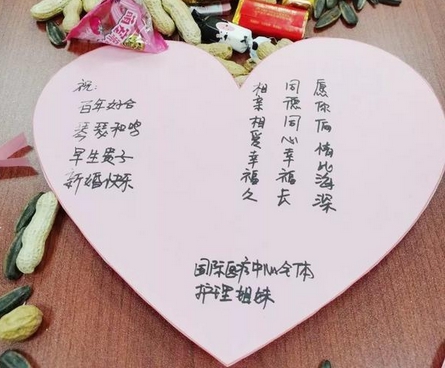 祝:
百年好合
琴瑟和鸣
早生贵子
新婚快乐
愿你俩情比海深
同德同心幸福长
相亲相爱幸福久
国际医疗中心全体
护理姐妹